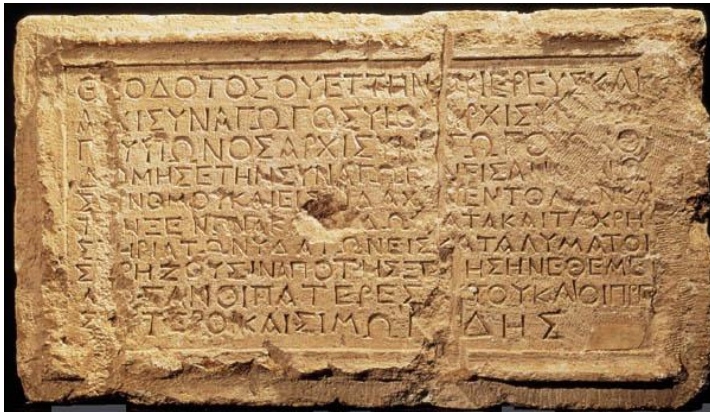 ΘΕΟΔΟΤΟΣΟΥΕΤΤΗΝΟΥΙΕΡΕΥΣΚΑΙ
ΑΡΧΙΣΥΝΑΓΩΓΟΣΥΙΟΣΑΡΧΙΣΥΝ
ΓΟΥΥΙΩΝΟΣΑΡΧΙΣΥΝΑΓΩΓΟΥ
ΔΟΜΗΣΕΤΗΝΣΥΝΑΓΩΓΗΝΕΙΣΑΝ
ΣΙΝΝΟΜΟΥΚΑΙΕΙΣΔΙΔΑΧΗΝΕΝΤΟΛΩΝΚΑΙ
ΤΟΝΞΕΝΩΝΑΚΑΙΤΑΔΩΜΑΤΑΚΑΙΤΑΧΡΗ
ΣΤΗΡΙΑΤΩΝΥΔΑΤΩΝΕΙΣΚΑΤΑΛΥΜΑΤΟΙ
ΣΧΡΗΖΟΥΣΙΝΑΠΟΤΗΣΞΕΝΗΣΗΝΕΘΕΜΕ
ΛΙΩΣΑΝΟΙΠΑΤΕΡΕΣΑΥΤΟΥΚΑΙΟΙΠΡΕ
ΣΒΥΤΕΡΟΙΚΑΙΣΙΜΩΝΙΔΗΣ